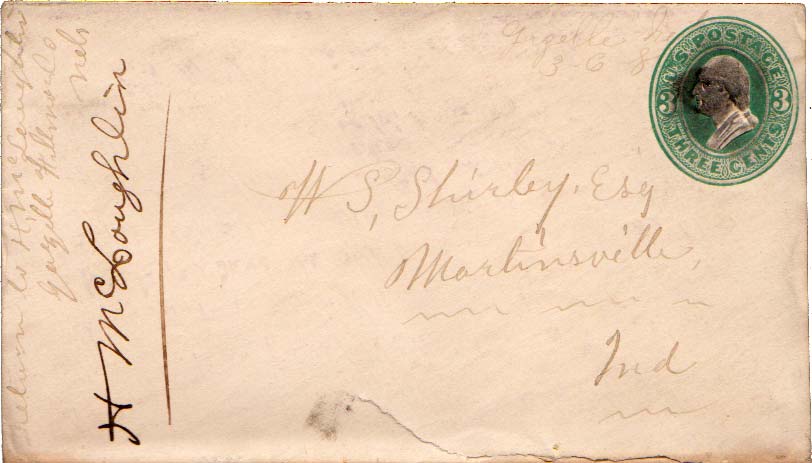 Gazelle Neb
3-6 8
U.S. POSTAGE
3 3
THREE CENTS
W S, Shirley, Esq
Martinsville,
Ind
Return to H McLoughlin
Gazelle Fillmore Co
Neb
H McLoughlin